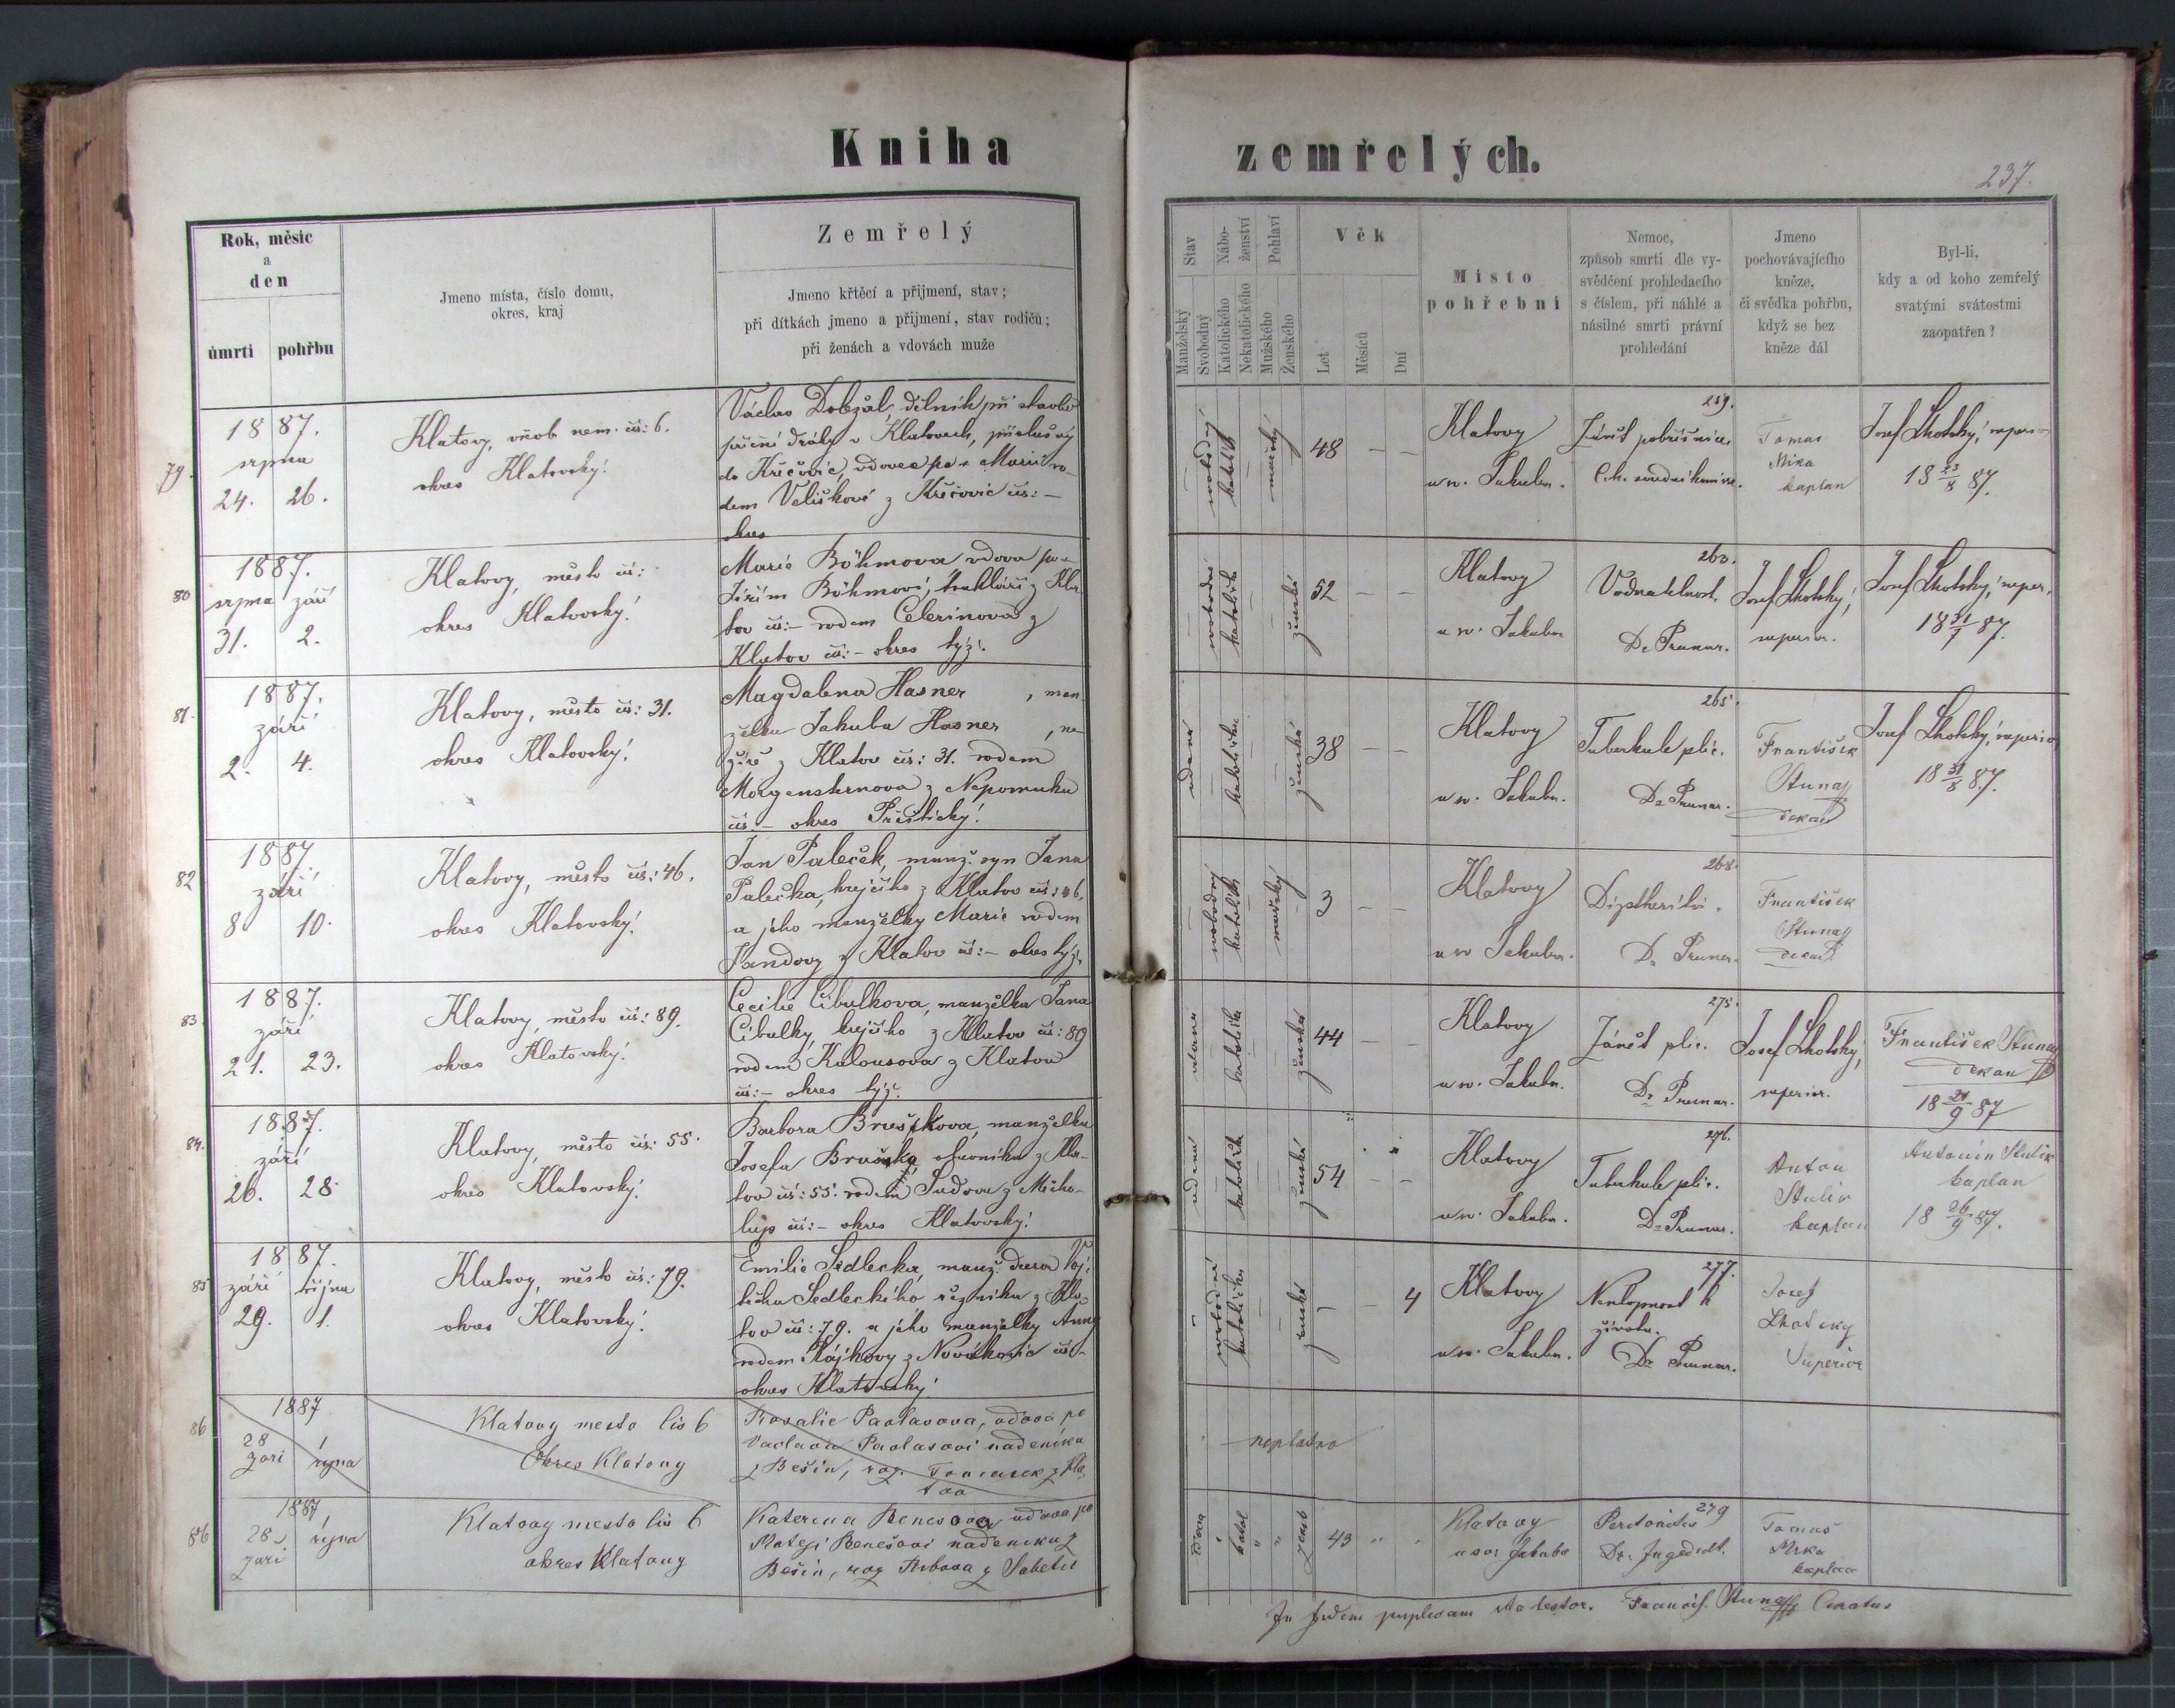 Kniha zemřelých.
237.
Rok, měsíc
a
den
úmrtí pohřbu
Jmeno místa, číslo domu,
okres, kraj
Zemřelý
Jmeno křtěcí a přijmení, stav;
při dítkách jmeno a přijmení, stav rodičů;
při ženách a vdovách muže
Stav
Manželský
Svobodný
Nábo-
ženství
Katolického
Nekatolického
Pohlaví
Mužského
Ženského
Věk
Let
Měsíců
Dní
Místo
pohřební
Nemoc,
způsob smrti dle vy-
svědčení prohledacího
s číslem, při náhlé a
násilné smrti právní
prohledání
Jmeno
pochovávajícího
kněze,
či svědka pohřbu,
když se bez
kněze dál
Byl-li,
kdy a od koho zemřelý
svatými svátostmi
zaopatřen?
79.
1887.
srpna
24. 26.
Klatovy, nem. čís: 6.
okres Klatovský.
Václav Doležal, dělník při stavbě
příční dráhy v Klatovech, příslušný
do Křečovic, vdovec po + Marii ro-
dem Veliškové z Křečovic čís: -
okres
svobodný
katolík
mužský
48 - -
Klatovy
u sv. Jakuba.
259.
Zánět pobřišnice.
Tomas
Mika
kaplan
Josef Lhotský, superior
18 23/8 87.
80
1887.
srpna září
31. 2.
Klatovy, město čís:
okres Klatovský.
Marie Böhmova vdova po +
Jiřím Böhmovi, z Kla-
tov čís: - rodem Celerinova z
Klatov čís: - okres týž.
ženské
52 - -
Klatovy
u sv. Jakuba
263.
Vodnatelnost.
Dr Prunar.
Josef Lhotský,
superior.
Josef Lhotský, super.
81.
1887.
září
2. 4.
Klatovy, město čís: 31.
okres Klatovský.
Magdalena Hasner, man-
želka Jakuba Hasner,
z Klatov čís: 31. rodem
Morgensternova z Nepomuku
čís: - okres Přeštický.
vdaná
katolička
ženská
38 - -
Klatovy
u sv. Jakuba.
265.
Tuberkule plic.
Dr Prunar.
František
Stunaz
dekan
Josef Lhotský, superior
18 31/8 87.
82
1887.
září
8. 10.
Klatovy, město čís: 46.
okres Klatovský.
Jan Paleček, manž. syn Jana
Palečka, krejčího z Klatov čís: 46.
a jeho manželky Marie rodem
Jandovy z Klatov čís: - okres týž.
svobodný
katolík
mužský
3 - -
Klatovy
u sv Jakuba.
268.
Diptheritis.
Dr Prunar.
František
Stunaz
dekan
83.
1887.
září
21. 23.
Klatovy, město čís: 89.
okres Klatovský.
Cecilie Cibulkova, manželka Jana
Cibulky, krejčího z Klatov čís: 89
rodem Kalousova z Klatov
čís: - okres týž.
vdaná
katolička
ženská
44 - -
Klatovy
u sv. Jakuba.
275.
Zánět plic.
Dr Prunar.
Josef Lhotský,
superior.
František Stunaz
dekan
18 21/9 87
84.
1887.
září
26. 28.
Klatovy, město čís: 55.
okres Klatovský.
Barbora Bruškova, manželka
Josefa Bruška, z Kla-
tov čís: 55. rodem z Mecho-
lup čís: - okres Klatovský.
vdaná
ženské
54 - -
Klatovy
u sv. Jakuba.
276.
Tuberkule plic.
Dr Prunar.
Anton
Stulik
kaplan
Antonin Stulik
kaplan
18 26/9 87.
85
1887.
září října
29. 1.
Klatovy, město čís: 79.
okres Klatovský.
Emilie Sedlecka, manž. dcera Voj-
těcha Sedleckého řezníka z Kla-
tov čís: 79. a jeho manželky Anny
rodem Hájkovy z Novákovic čís -
okres Klatovský
svobodná
katolička
ženské
- - 4
Klatovy
u sv. Jakuba.
277.
Neschopnost k
životu.
Dr Prunar.
Josef
Lhotsky
Superior
86
1887
28 1
zari rijna
Klatovy mesto čis 6
Okres Klatovy
Rosalie Pavlasova, vdova po
Vaclavu Pavlasovi nadeniku
z Bešin, roz. Tomasek z Kla
tov
neplatno
86
1887
28 1
zari rijna
Klatovy mesto čis 6
okres Klatovy
Katerina Benesova vdova po
Matěji Benešovi nadeniku z
Bešin, roz
vdova
katol
43
Klatovy
u sv: Jakuba
279
Peritonitis
Tomaš
Mika
kaplan
Curatus